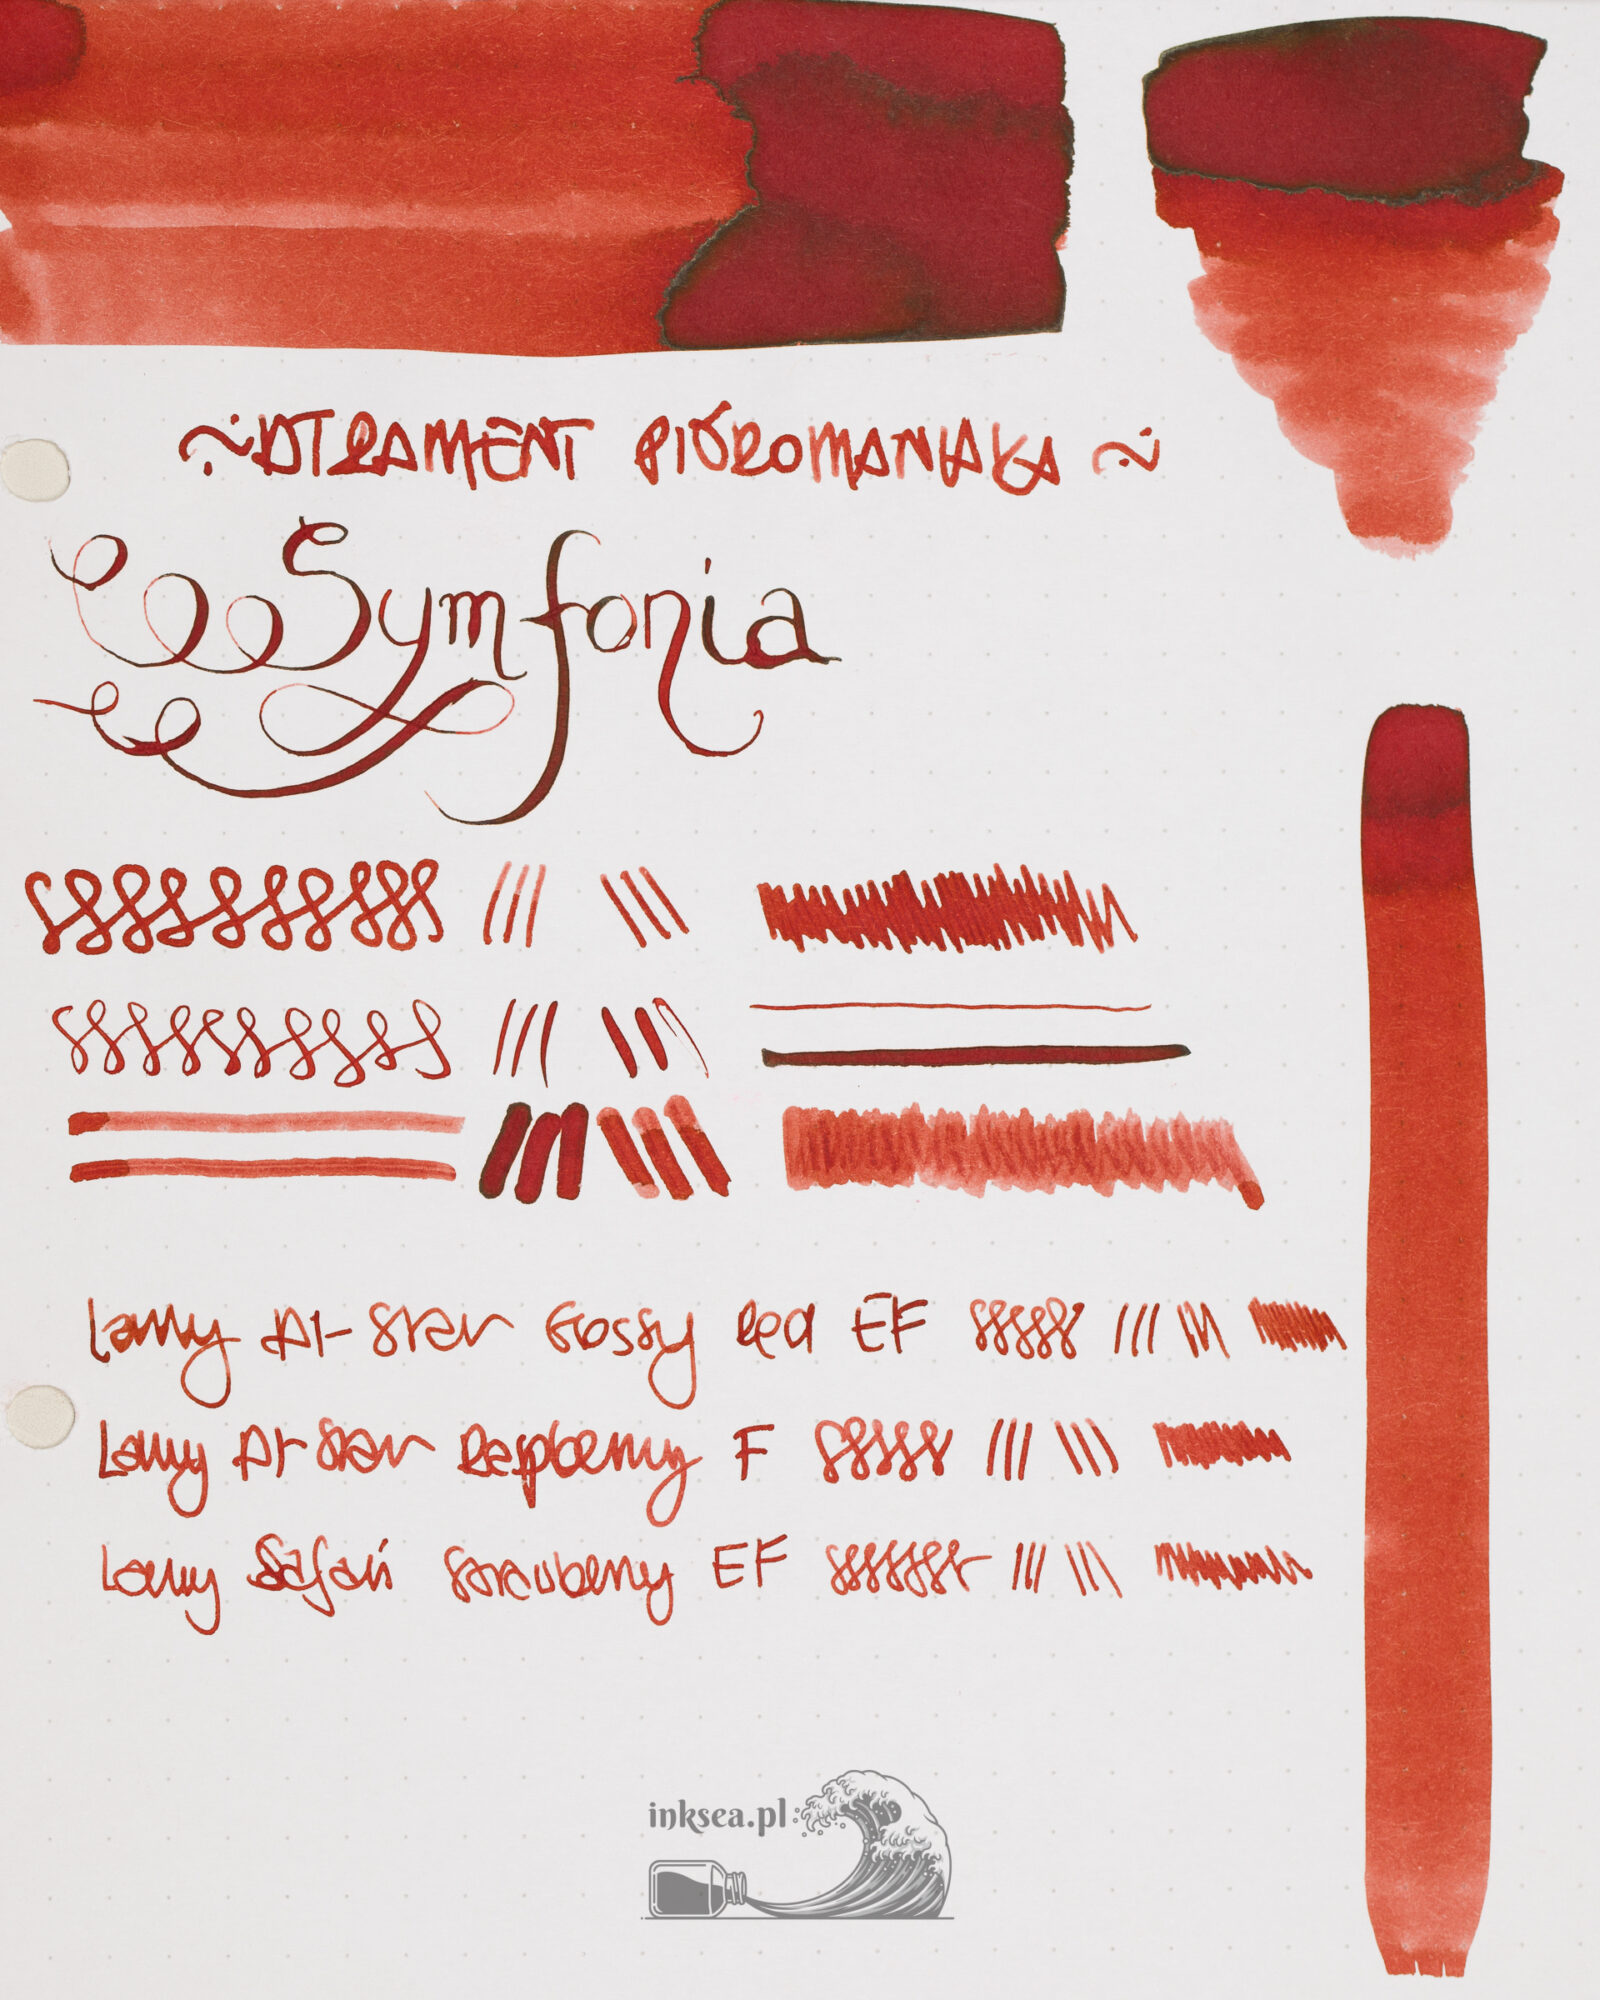 ~ ATRAMENT PIÓROMANIAKA ~
Symfonia
Lamy Al-Star Glossy Red EF
Lamy Al-Star Raspberry F
Lamy Safari Strawberry EF
inksea.pl